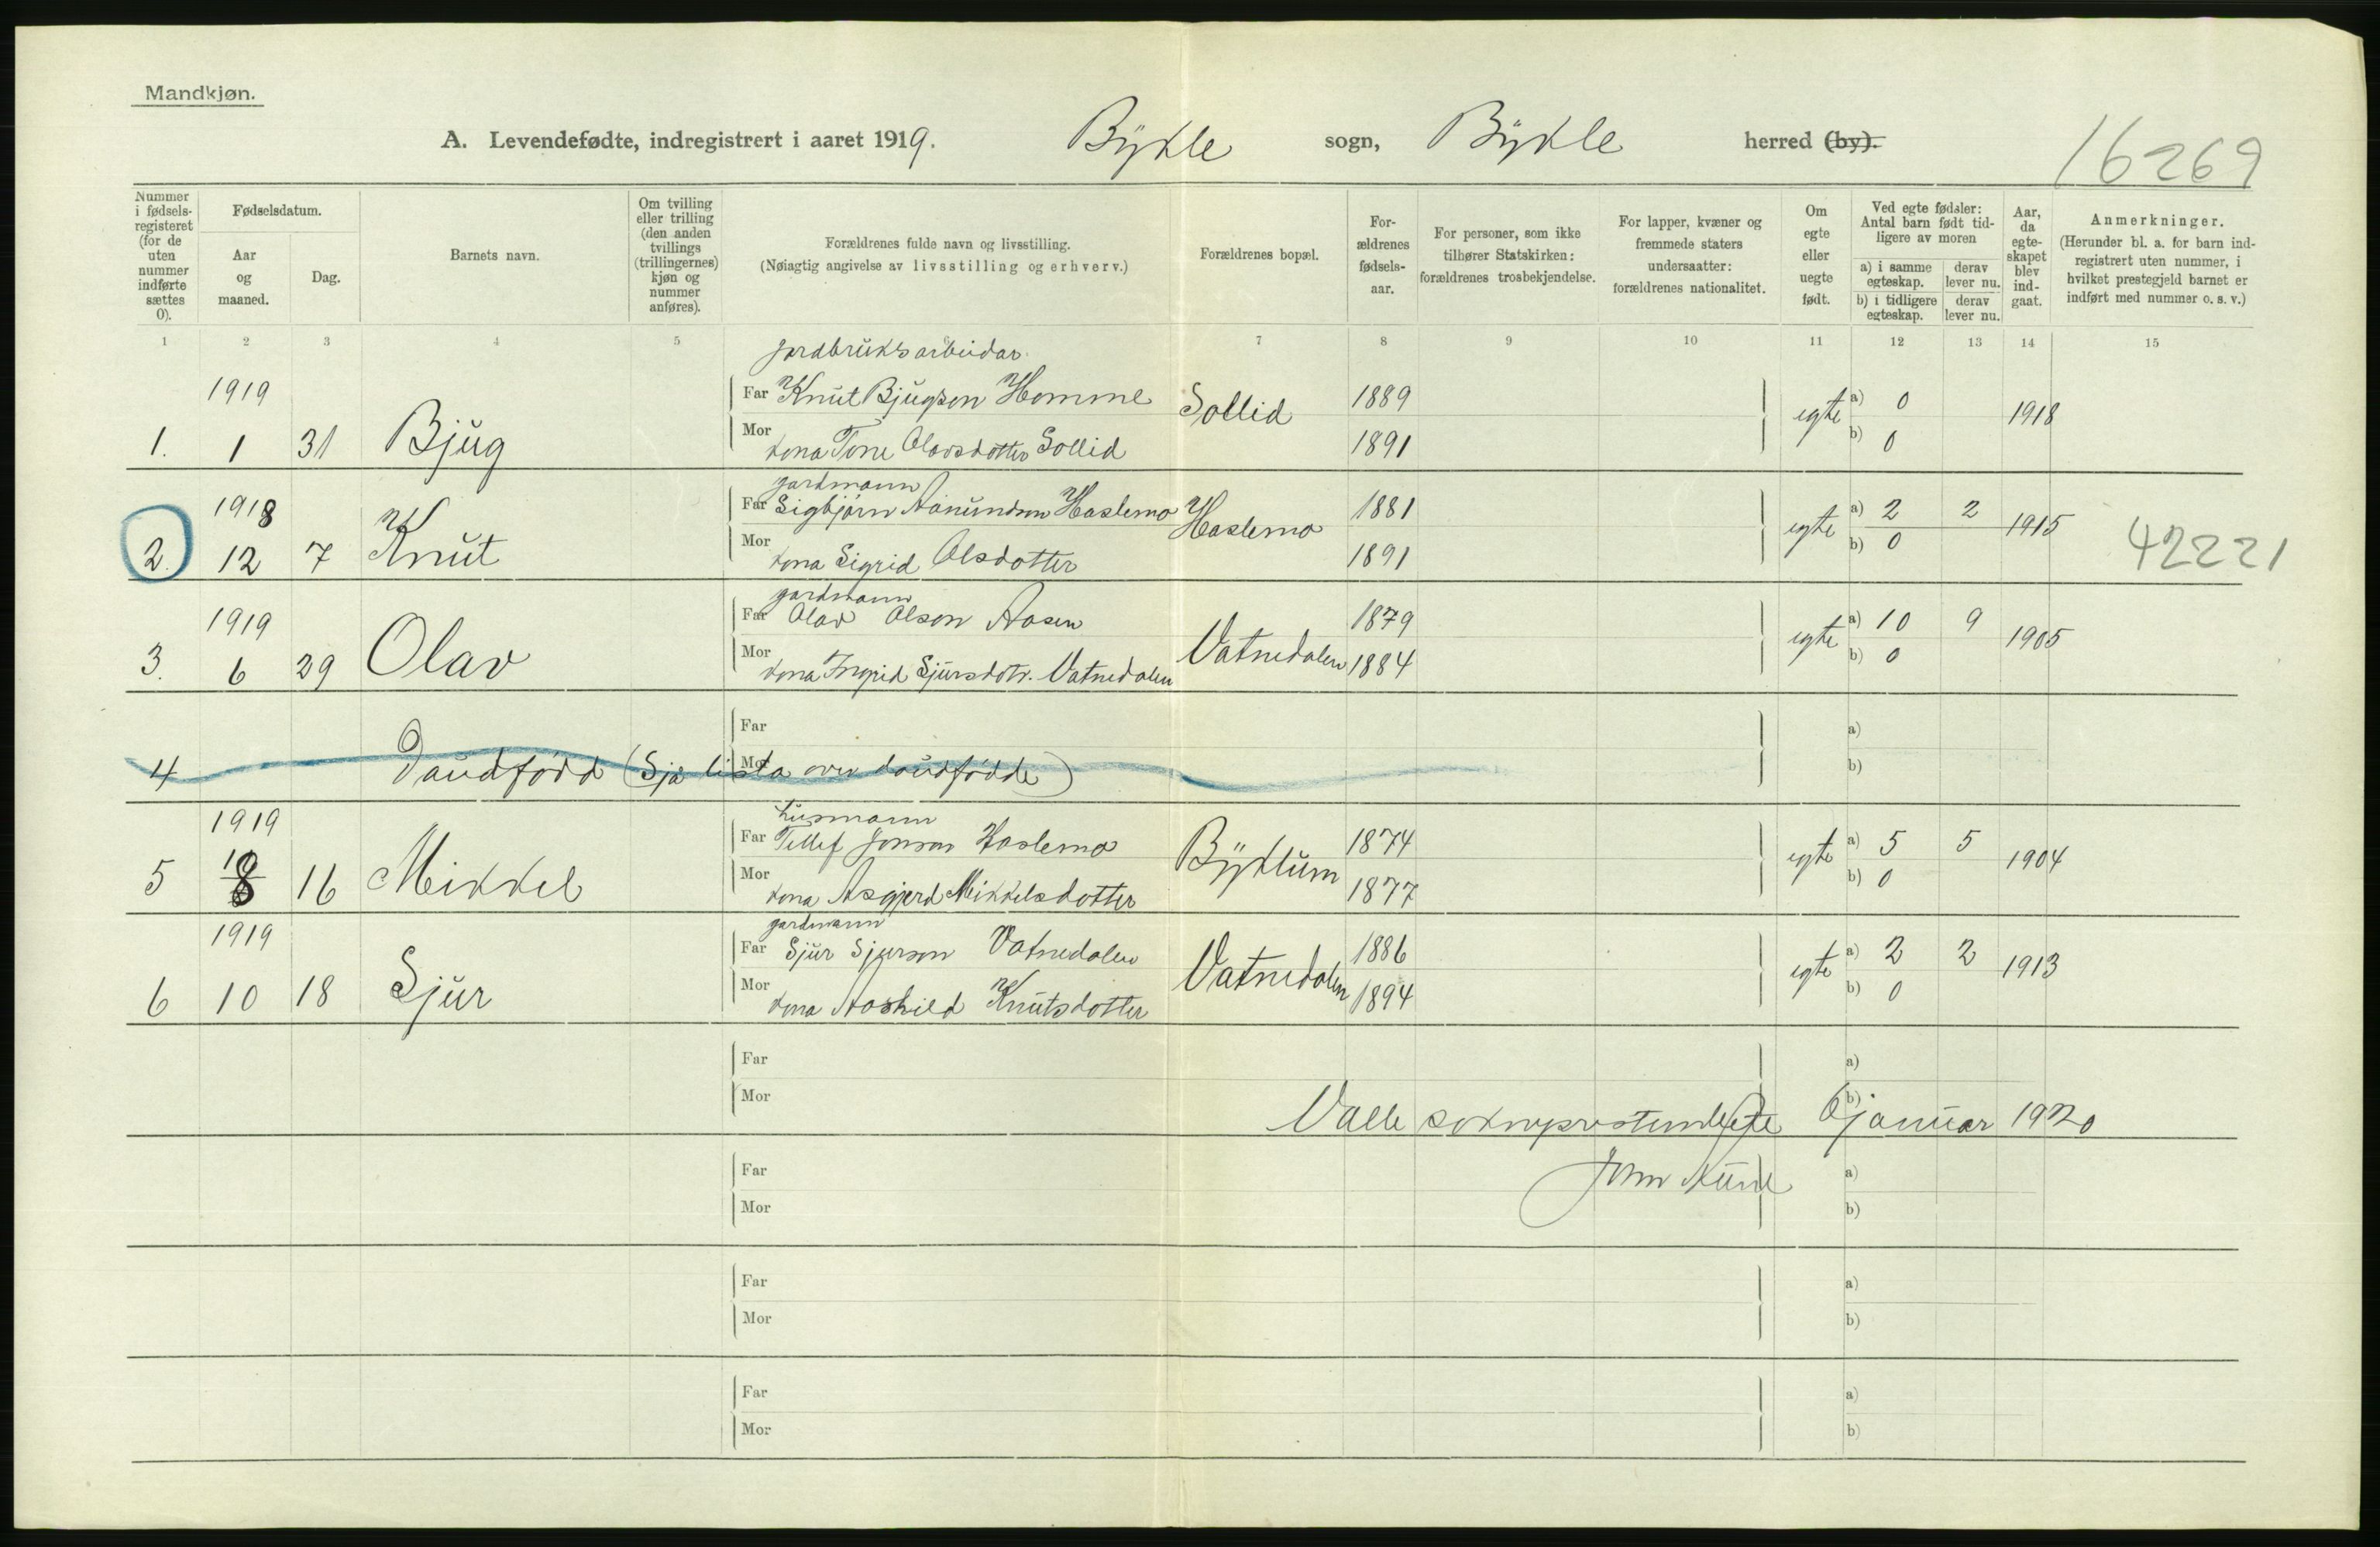 Mandkjøn.
A. Levendefødte, indregistrert i aaret 1919. Bykle sogn, Bykle herred (by). 16269
Nummer i fødsels-registeret (for de uten nummer indførte sættes 0).
Fødselsdatum.
Aar og maaned.
Dag.
Barnets navn.
Om tvilling eller trilling (den anden tvillings (trillingernes) kjøn og nummer anføres).
Forældrenes fulde navn og livsstilling.
(Nøiagtig angivelse av livsstilling og erhverv.)
Forældrenes bopæl.
For-ældrenes fødsels-aar.
For personer, som ikke tilhører Statskirken: forældrenes trosbekjendelse.
For lapper, kvæner og fremmede staters undersaatter: forældrenes nationalitet.
Om egte eller uegte født.
Ved egte fødsler: Antal barn født tid-ligere av moren
a) i samme egteskap. derav lever nu.
b) i tidligere egteskap. derav lever nu.
Aar, da egte-skapet blev ind-gaat.
Anmerkninger.
(Herunder bl. a. for barn ind-registrert uten nummer, i hvilket prestegjeld barnet er indført med nummer o. s. v.)
1 2 3 4 5 6 7 8 9 10 11 12 13 14 15
jordbruksarbeidar
1919 Far Knut Bjugson Homme Sollid 1889 egte a) 0 1918
1. 1 31 Bjug Mor kona Tone Olavsdotter Sollid 1891 b) 0
gardmann
1918 Far Sigbjørn Aanundson Haslemo Haslemo 1881 egte a) 2 2 1915
2. 12 7 Knut Mor kona Sigrid Olsdotter 1891 b) 0 42221
gardmann
1919 Far Olav Olson Aasen Vatnedalen 1879 egte a) 10 9 1905
3. 6 29 Olav Mor kona Ingrid Sjursdotr. Vatnedalen 1884 b) 0
Far a)
4 Daudfødd (Sjå lista over daudfødde) Mor b)
husmann
1919 Far Tellef Jonson Haslemo Byklum 1874 egte a) 5 5 1904
5 8 16 Mikkel Mor kona Asgjerd Mikkelsdotter 1877 b) 0
gardmann
1919 Far Sjur Sjurson Vatnedalen Vatnedalen 1886 egte a) 2 2 1913
6 10 18 Sjur Mor kona Aashild Knutsdotter 1894 b) 0
Far a)
Mor b)
Valle sokneprestembete 6 januar 1920
Far a)
Mor b)
Far a)
Mor b)
Far a)
Mor b)